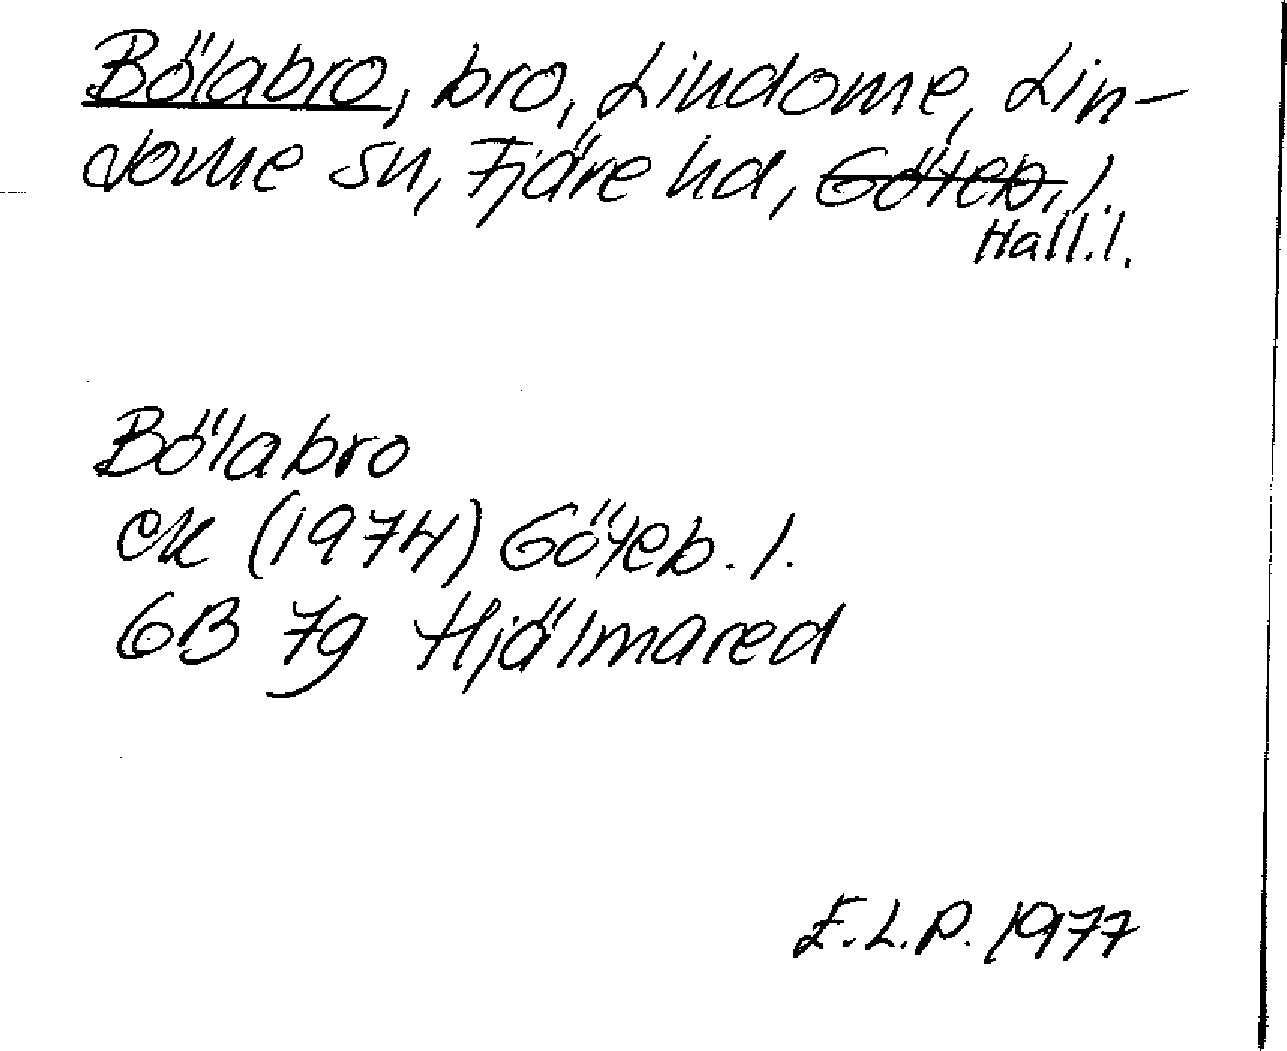 Bölabro, bro, Lindome, Lin-
dome sn, Fjäre hd, Göteb. l.
Hall. l.
Bölabro
ek (1974) Göteb. l.
6B 7g Hjälmared
E.L.P. 1977